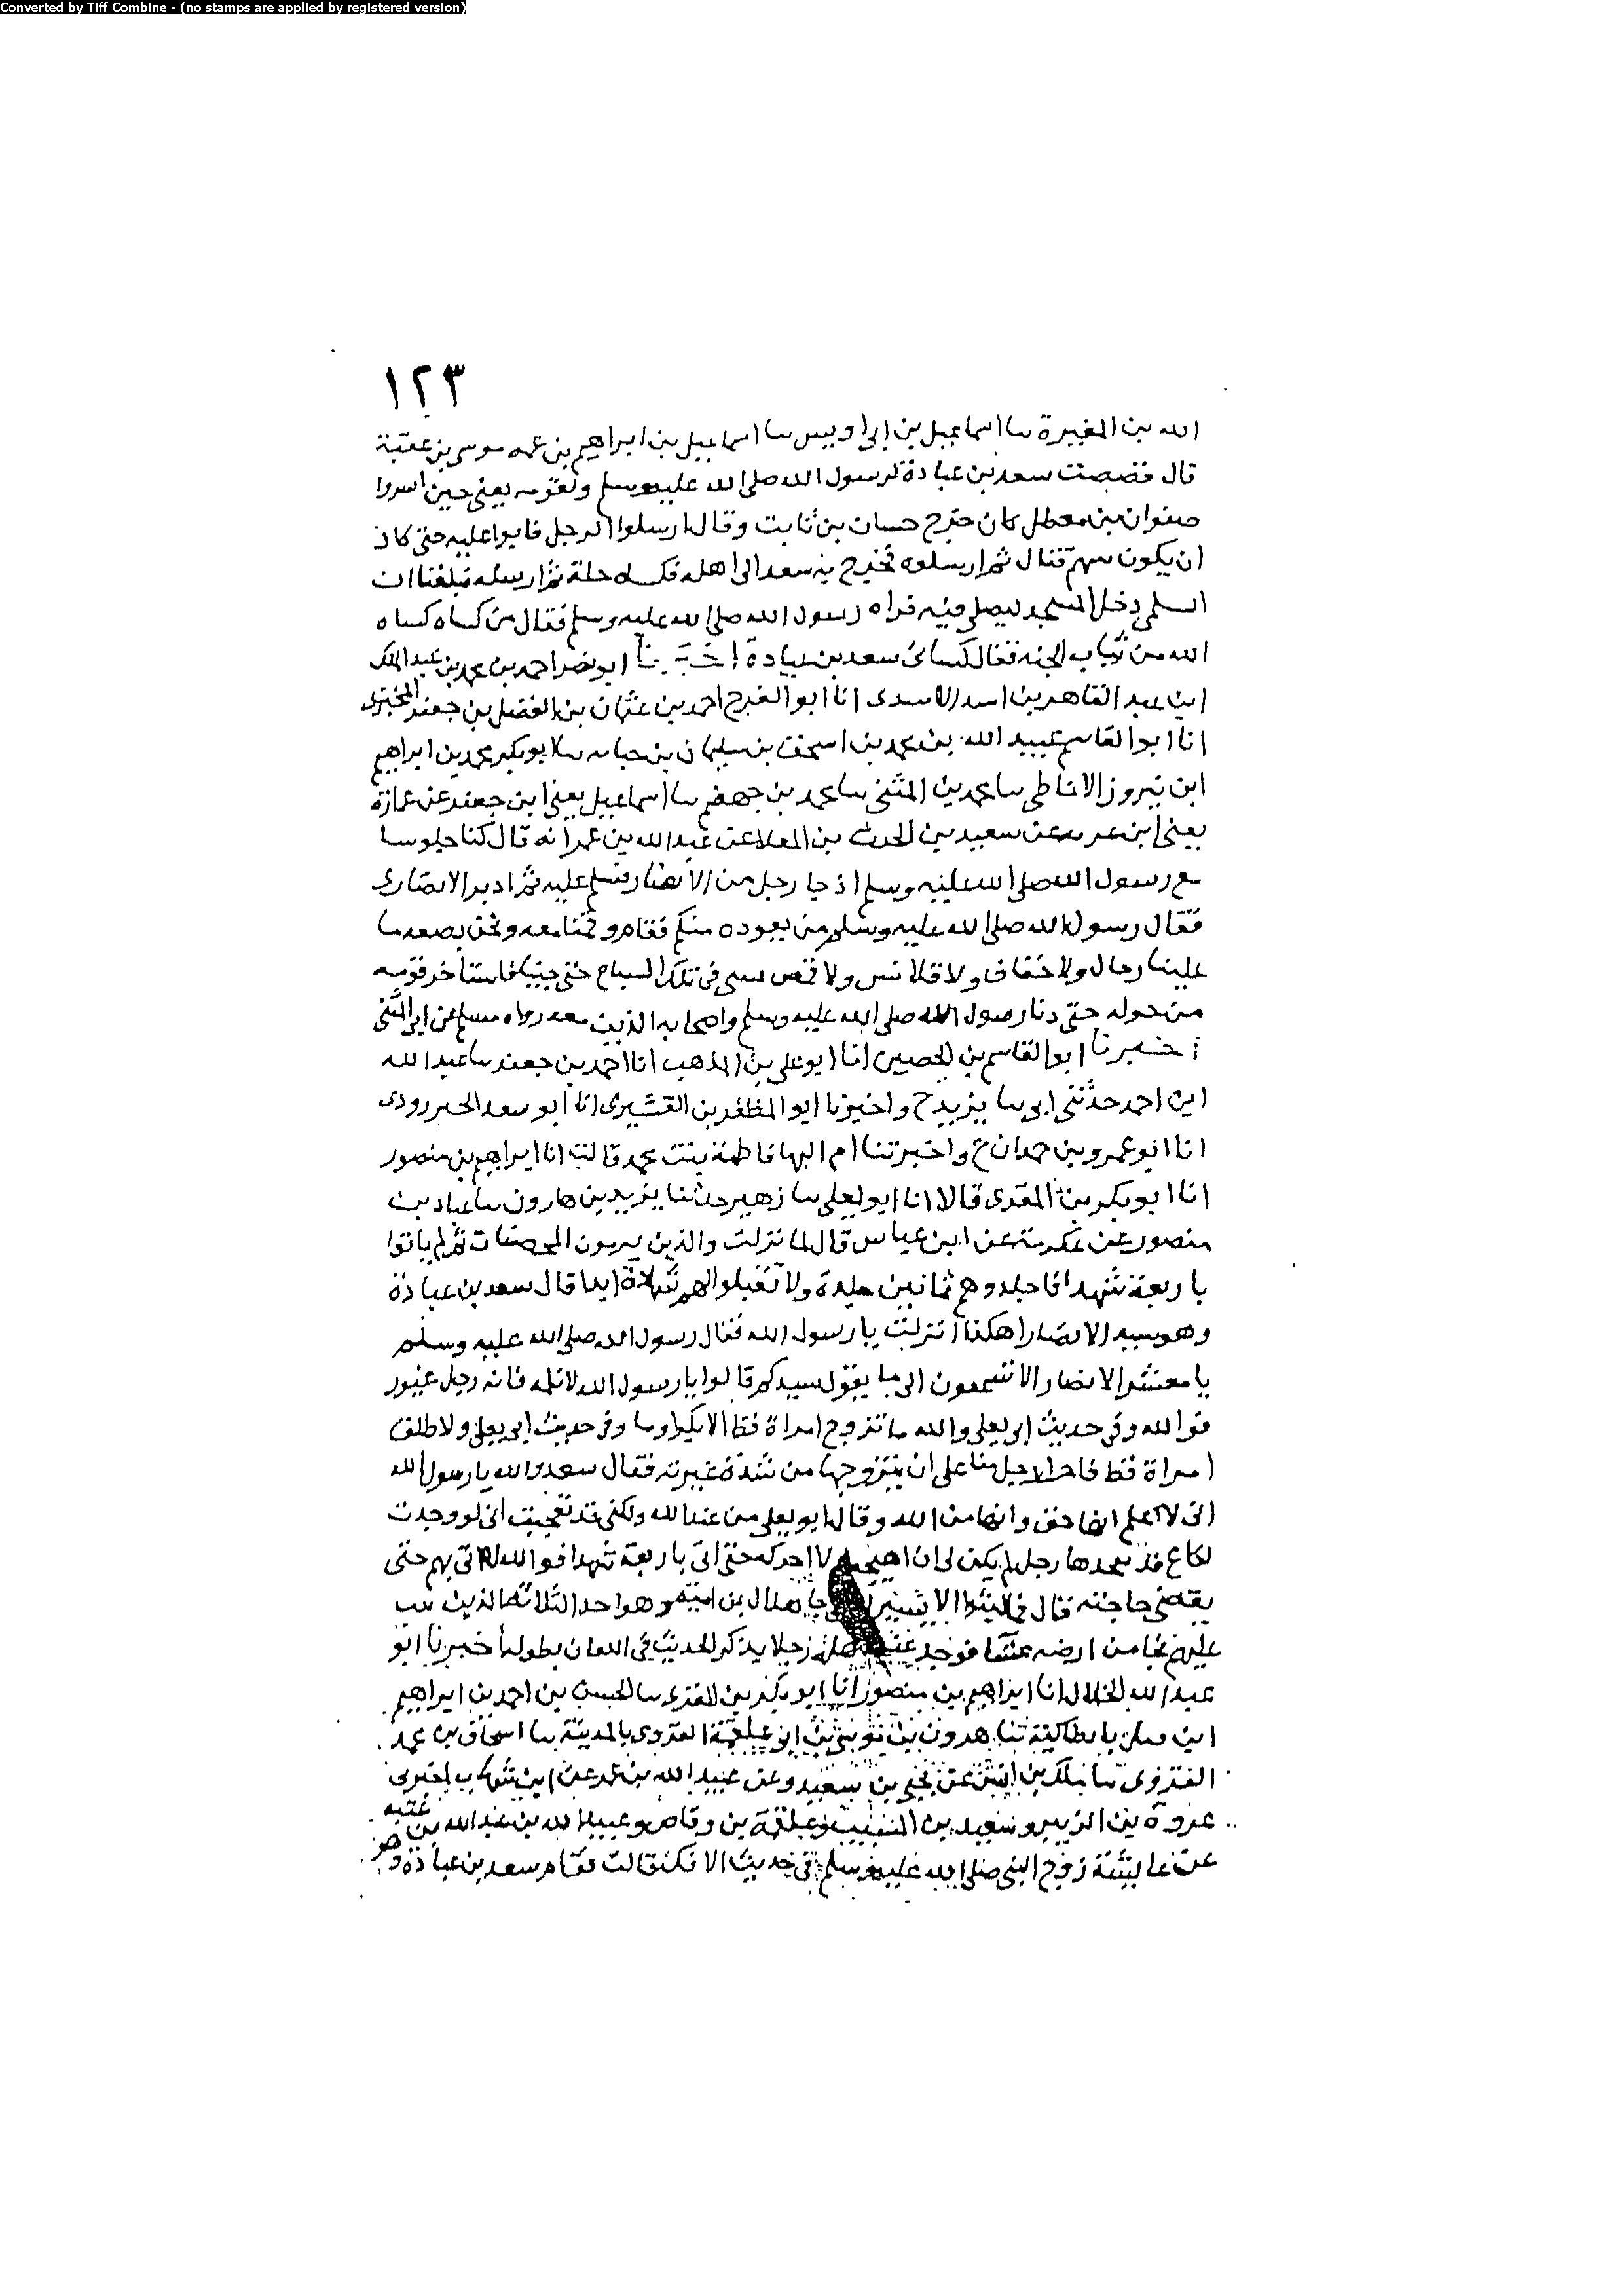 Converted by Tiff Combine - (no stamps are applied by registered version)
١٢٣
الله بن المغيرة نا اسماعيل بن ابي اويس نا اسماعيل بن ابراهيم بن عمه موسى بن عقبة
قال فغضبت سعد بن عبادة لرسول الله صلى الله عليه وسلم ولقومه يعني حين اسروا
صفوان بن معطل كان جرح حسان بن ثابت وقال ارسلوا الرجل فابوا عليه حتى كاد
ان يكون منهم قتال ثم ارسلوه فخرج به سعد الى اهله فكساه حلة ثم ارسله فبلغنا ان
السلمي دخل المسجد ليصلي فيه فراه رسول الله صلى الله عليه وسلم فقال من كساه كساه
الله من ثياب الجنه فقال كساني سعد بن عبادة اخبرنا ابو نصر احمد بن محمد بن عبد الملك
ابن عبد القاهر بن اسد الاسدى انا ابو الفرج احمد بن عثمان بن الفضل بن جعفر المخبزى
انا ابو القاسم عبيد الله بن محمد بن اسحق بن سليمان بن حبابه نا ابو بكر محمد بن ابراهيم
ابن نيروز الانماطي نا محمد بن المثنى نا محمد بن جهضم نا اسماعيل يعني ابن جعفر عن عمارة
يعني ابن عن سعيد بن الحرث بن المعلا عن عبد الله بن عمر انه قال كنا جلوسا
مع رسول الله صلى الله عليه وسلم اذ جا رجل من الانصار فسلم عليه ثم ادبر الانصارى
فقال رسول الله صلى الله عليه وسلم من يعوده منكم فقام وقمنا معه ونحن بضعه ما
علينا رحال ولا خفاف ولا قلانس ولا قمص في تلك السباخ حتى جينا فاستاخر قومه
من حوله حتى دنا رسول الله صلى الله عليه وسلم واصحابه الذين معه رواه مسلم عن ابن المثنى
اخبرنا ابو القاسم بن الحصين انا ابو علي بن المذهب انا احمد بن جعفر نا عبد الله
ابن احمد حدثني ابي نا يزيد ح واخبرنا ابو المظفر بن القشيرى انا ابو سعد الجنزرودى
انا ابو عمرو بن حمدان ح واخبرتنا ام البها فاطمة بنت محمد قالت انا ابراهيم بن منصور
انا ابو بكر بن المقرى قالا انا ابو يعلى نا زهير حدثنا يزيد بن هارون نا عباد بن
منصور عن عكرمة عن ابن عباس قال لما نزلت والذين يرمون المحصنات ثم لم ياتوا
باربعة شهدا فاجلدوهم ثمانين جلدة ولا تقبلوا لهم شهادة ابدا قال سعد بن عبادة
وهو سيد الانصار اهكذا انزلت يا رسول الله فقال رسول الله صلى الله عليه وسلم
يا معشر الانصار الا تسمعون الى ما يقول سيدكم قالوا يا رسول الله لا تلمه فانه رجل غيور
فوالله وفي حديث ابي يعلى والله ما تزوج امراة قط الا بكرا وما وفي حديث ابي يعلى ولا طلق
امراة قط فاجترا رجل منا على ان يتزوجها من شدة غيرته فقال سعد والله يا رسول الله
اني لاعلم انها حق وانها من الله وقال ابو يعلى من عند الله ولكني قد تعجبت اني لو وجدت
لكاع قد تفخذها رجل لم يكن لي ان اهيجه ولا احركه حتى اتي باربعة شهدا فوالله لا اتي بهم حتى
يقضي حاجته قال فما لبثوا الا يسيرا حتى جا هلال بن امية وهو احد الثلاثة الذين تيب
عليهم فجا من ارضه عشا فوجد عند اهله رجلا يذكر الحديث في اللعان بطوله اخبرنا ابو
عبد الله الخلال انا ابراهيم بن منصور انا ابو بكر بن المقرى نا الحسن بن احمد بن ابراهيم
ابن بانطاكية ثنا هرون بن موسى بن ابي علقمة الفروى بالمدينة نا اسحاق بن محمد
الفروى نا مالك بن انس عن يحيى بن سعيد وعن عبيد الله بن عمر عن ابن شهاب اخبرنى
عروة بن الزبير وسعيد بن المسيب وعلقمة بن وقاص وعبيد الله بن عبد الله بن عتبه
عن عايشة زوج النبي صلى الله عليه وسلم في حديث الافك قالت فقام سعد بن عبادة وهو